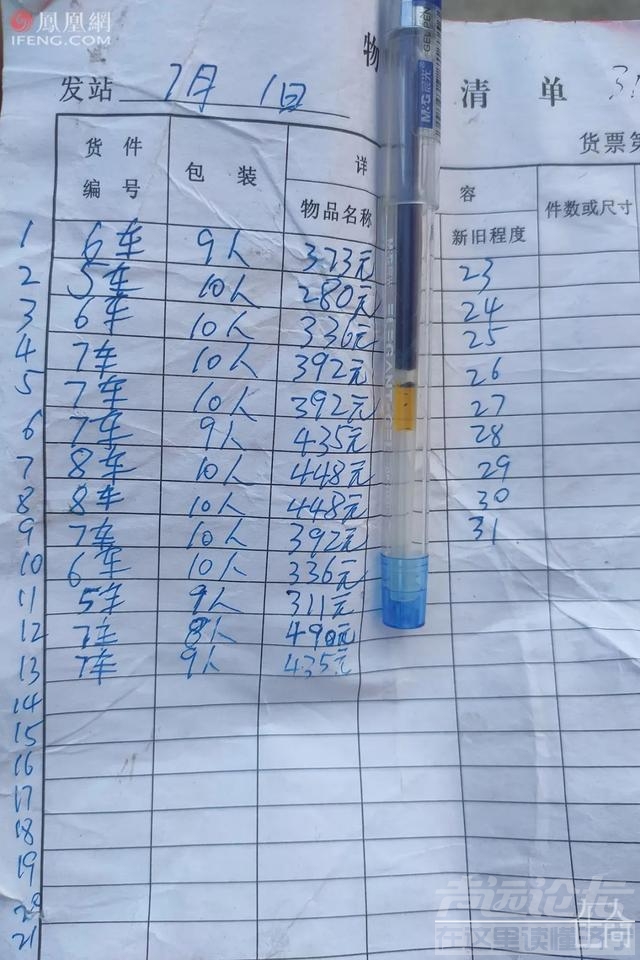 鳳凰網
IFENG.COM
物 清 单
发站 7月 1日
货票第
货件编号 包装 详 容
物品名称 新旧程度 件数或尺寸
1 6车 9人 373元 23
2 5车 10人 280元 24
3 6车 10人 336元 25
4 7车 10人 392元 26
5 7车 10人 392元 27
6 7车 9人 435元 28
7 8车 10人 448元 29
8 8车 10人 448元 30
9 7车 10人 392元 31
10 6车 10人 336元
11 5车 9人 311元
12 7车 8人 490元
13 7车 9人 435元
14
15
16
17
18
19
20
21
M&G 晨光
GEL PEN
在这里读懂
人间